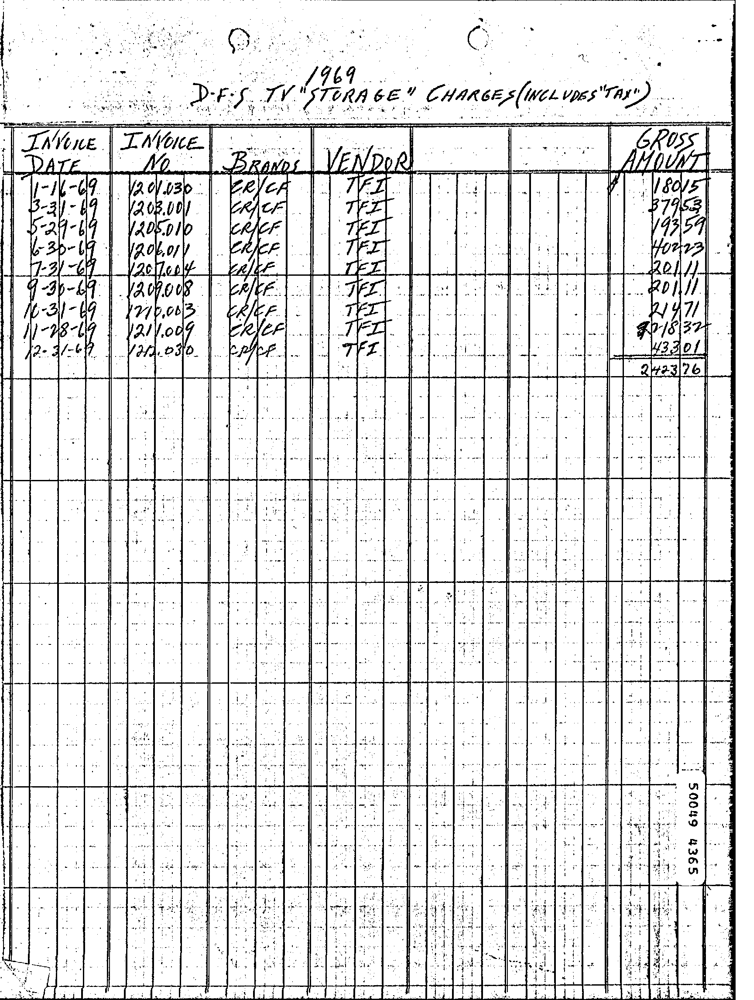 1969
D-F-S TV "STORAGE" CHARGES (INCLUDES "TAX")
INVOICE DATE INVOICE NO. BRANDS VENDOR GROSS AMOUNT
1-16-69 1201.030 CR/CF TFI 18015
3-31-69 1203.001 CR/CF TFI 37953
5-29-69 1205.010 CR/CF TFI 19359
6-30-69 1206.011 CR/CF TFI 40223
7-31-69 1207.004 CR/CF TFI 20111
9-30-69 1209.008 CR/CF TFI 20111
10-31-69 1210.003 CR/CF TFI 21471
11-28-69 1211.009 CR/CF TFI 21832
12-31-69 1212.030 CR/CF TFI 43301
242376
50049 4365